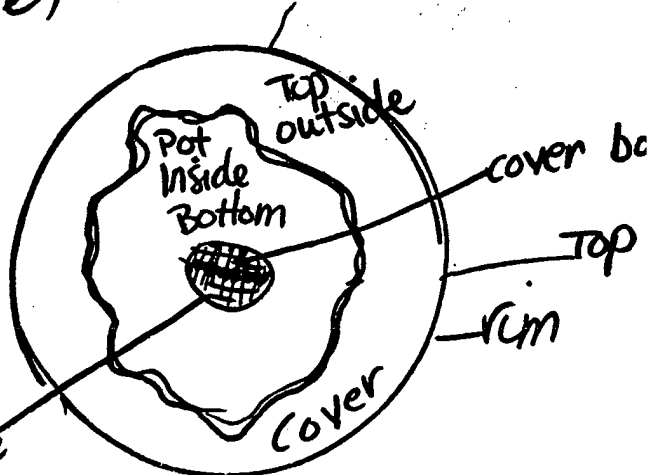 Top
outside
Pot
Inside
Bottom
cover bo
Top
rim
Cover